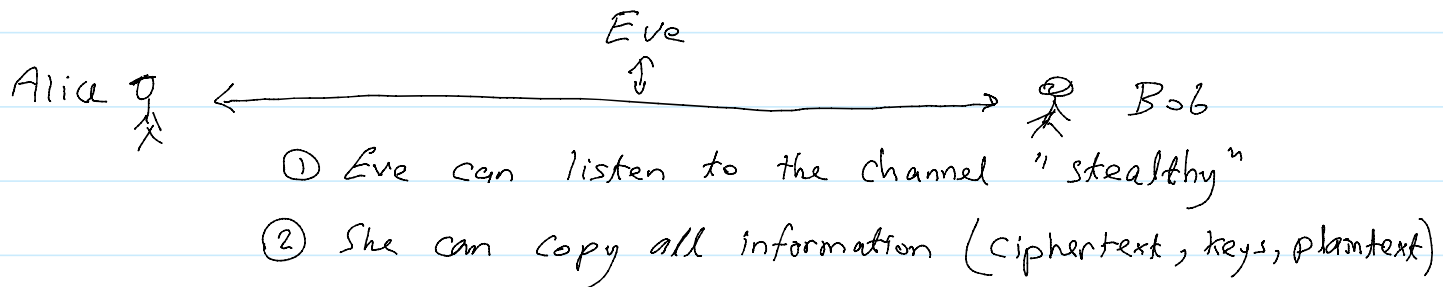 Eve
Alice Bob
① Eve can listen to the channel "stealthy"
② She can copy all information (ciphertext, keys, plaintext)